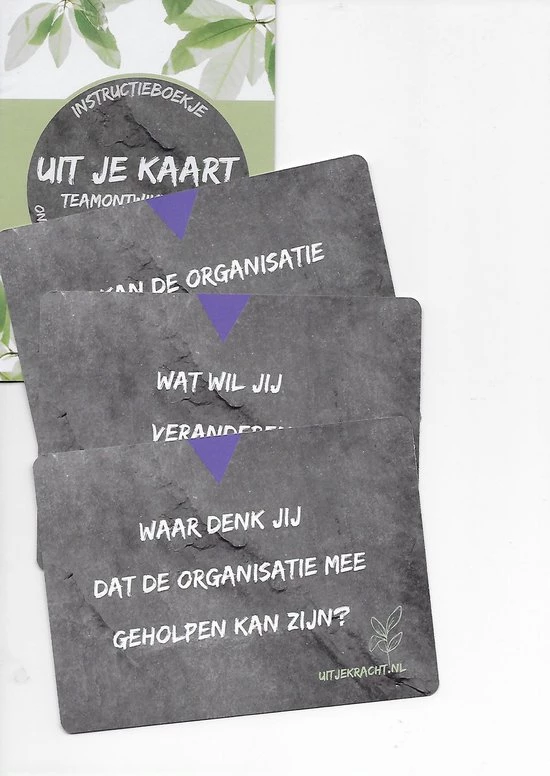 INSTRUCTIEBOEKJE
UIT JE KAART
KAN DE ORGANISATIE
WAT WIL JIJ
VERANDEREN
WAAR DENK JIJ
DAT DE ORGANISATIE MEE
GEHOLPEN KAN ZIJN?
UITJEKRACHT.NL